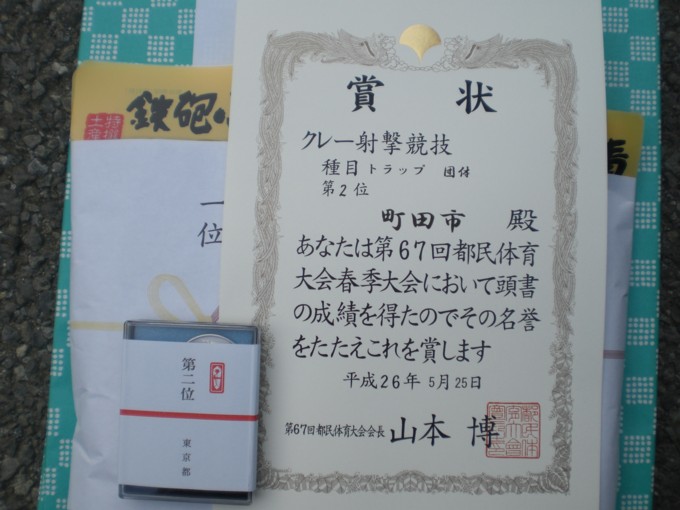 賞 状
クレー射撃競技
種目 トラップ 団体
第2位
町田市 殿
あなたは第67回都民体育
大会春季大会において頭書
の成績を得たのでその名誉
をたたえこれを賞します
平成26年 5月25日
第67回都民体育大会会長 山本 博
鉄砲
特撰
土産
一
位
第二位
東京都